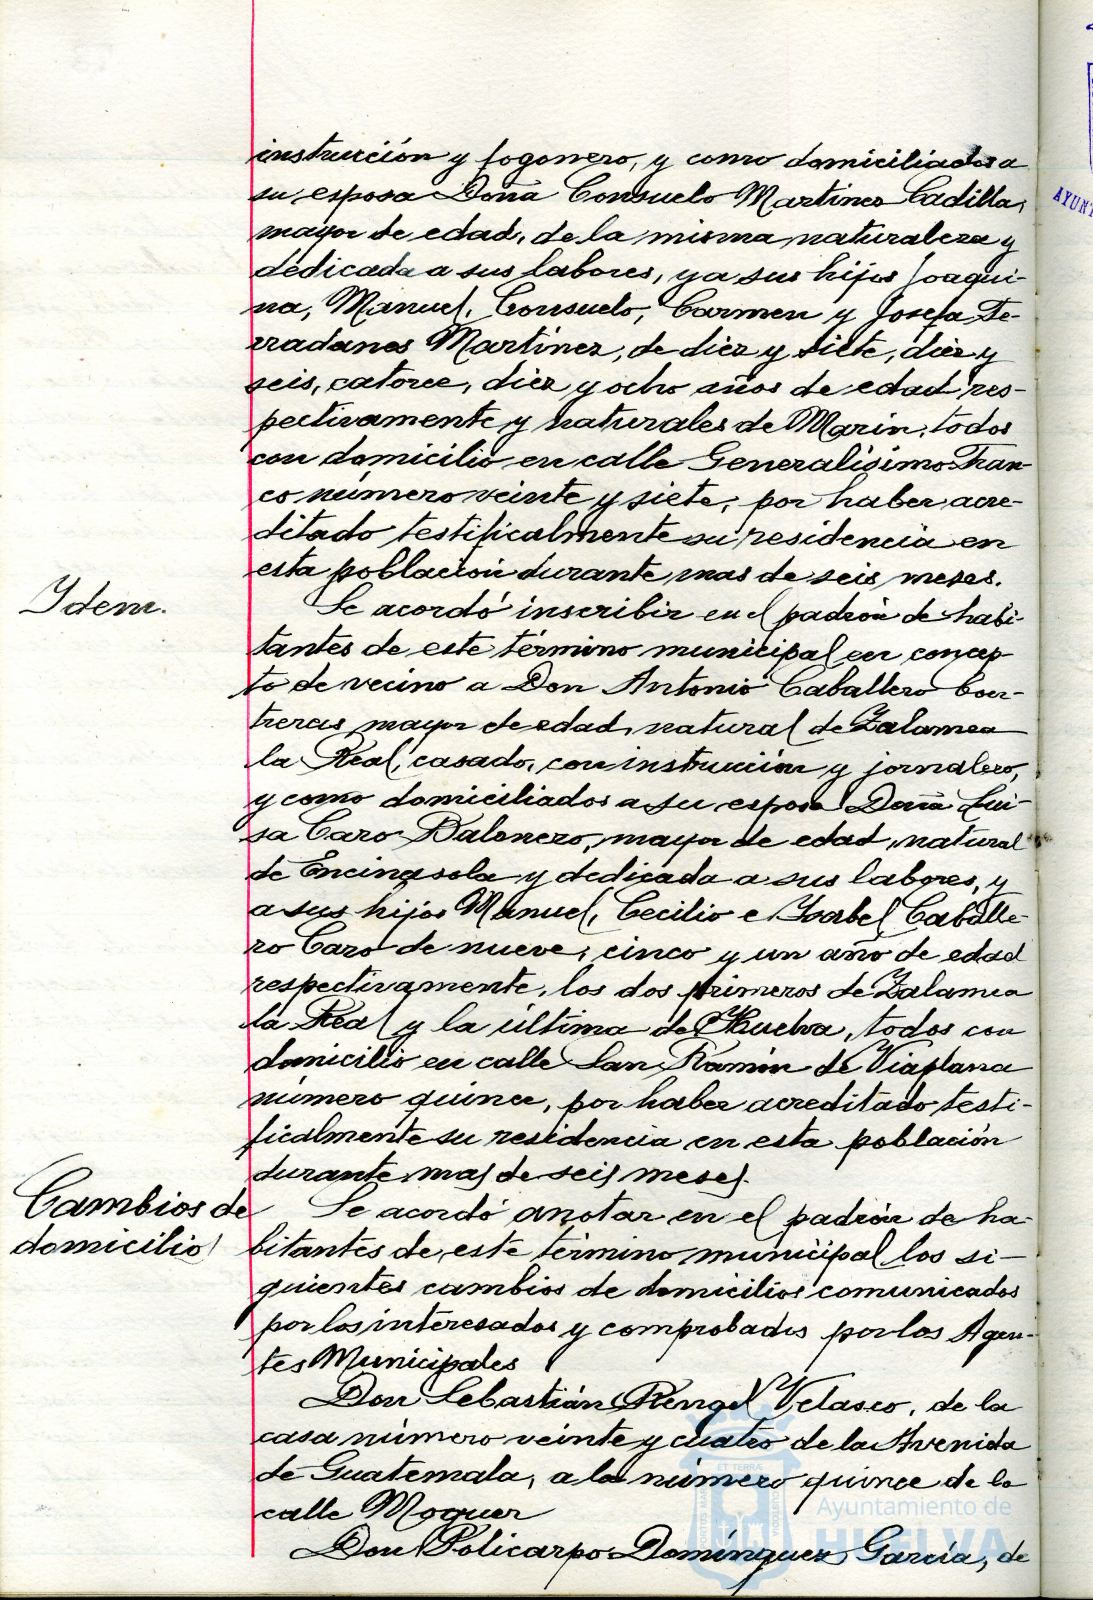 instrucción y fogonero, y como domiciliados a
su esposa Doña Consuelo Martinez Cadilla,
mayor de edad, de la misma naturaleza y
dedicada a sus labores, y a sus hijos Joaqui-
na, Manuel, Consuelo, Carmen y Josefa Fe-
rradanes Martinez, de diez y siete, diez y
seis, catorce, diez y ocho años de edad res-
pectivamente y naturales de Marin, todos
con domicilio en calle Generalisimo Fran-
co número veinte y siete, por haber acre-
ditado testificalmente su residencia en
esta población durante mas de seis meses.
Idem.
Se acordó inscribir en el padrón de habi-
tantes de este término municipal en concep
to de vecino a Don Antonio Caballero Con-
treras mayor de edad, natural de Zalamea
la Real, casado, con instrucción y jornalero,
y como domiciliados a su esposa Doña Lui-
sa Caro Balonero, mayor de edad, natural
de Encinasola y dedicada a sus labores, y
a sus hijos Manuel, Cecilio e Isabel Caballe-
ro Caro de nueve, cinco y un año de edad
respectivamente, los dos primeros de Zalamea
la Real y la última de Huelva, todos con
domicilio en calle San Ramón de Viaplana
número quince, por haber acreditado testi-
ficalmente su residencia en esta población
durante mas de seis meses.
Cambios de
domicilio
Se acordó anotar en el padrón de ha-
bitantes de este término municipal los si-
guientes cambios de domicilios comunicados
por los interesados y comprobados por los Agen-
tes Municipales
Don Sebastián Rengel Velasco, de la
casa número veinte y cuatro de la Avenida
de Guatemala, a la número quince de la
calle Moguer
Don Policarpo Domínguez García, de
Ayuntamiento de
HUELVA